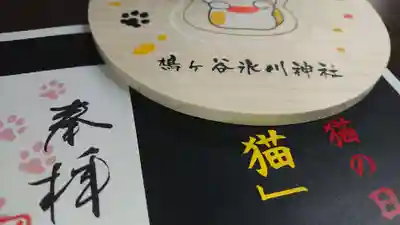 鳩ヶ谷氷川神社
猫の日
猫」
奉拝